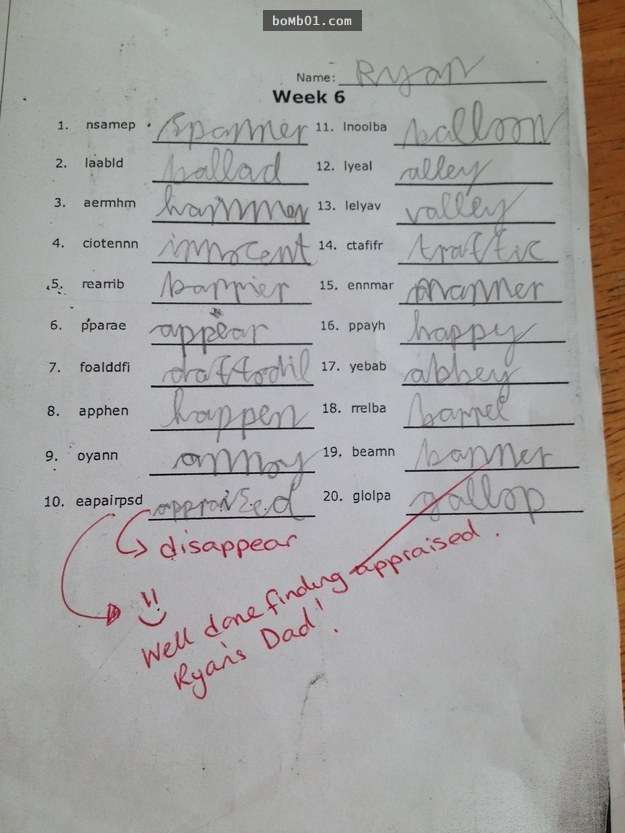 boMb01.com
Name: Ryan
Week 6
1. nsamep spanner 11. lnoolba balloon
2. laabld ballad 12. lyeal alley
3. aermhm hammer 13. lelyav valley
4. ciotennn innocent 14. ctafifr traffic
5. rearrib barrier 15. ennmar manner
6. pparae appear 16. ppayh happy
7. foalddfi daffodil 17. yebab abbey
8. apphen happen 18. rrelba barrel
9. oyann annoy 19. beamn banner
10. eapairpsd appraised 20. glolpa gallop
disappear
Well done finding appraised.
Ryan's Dad!